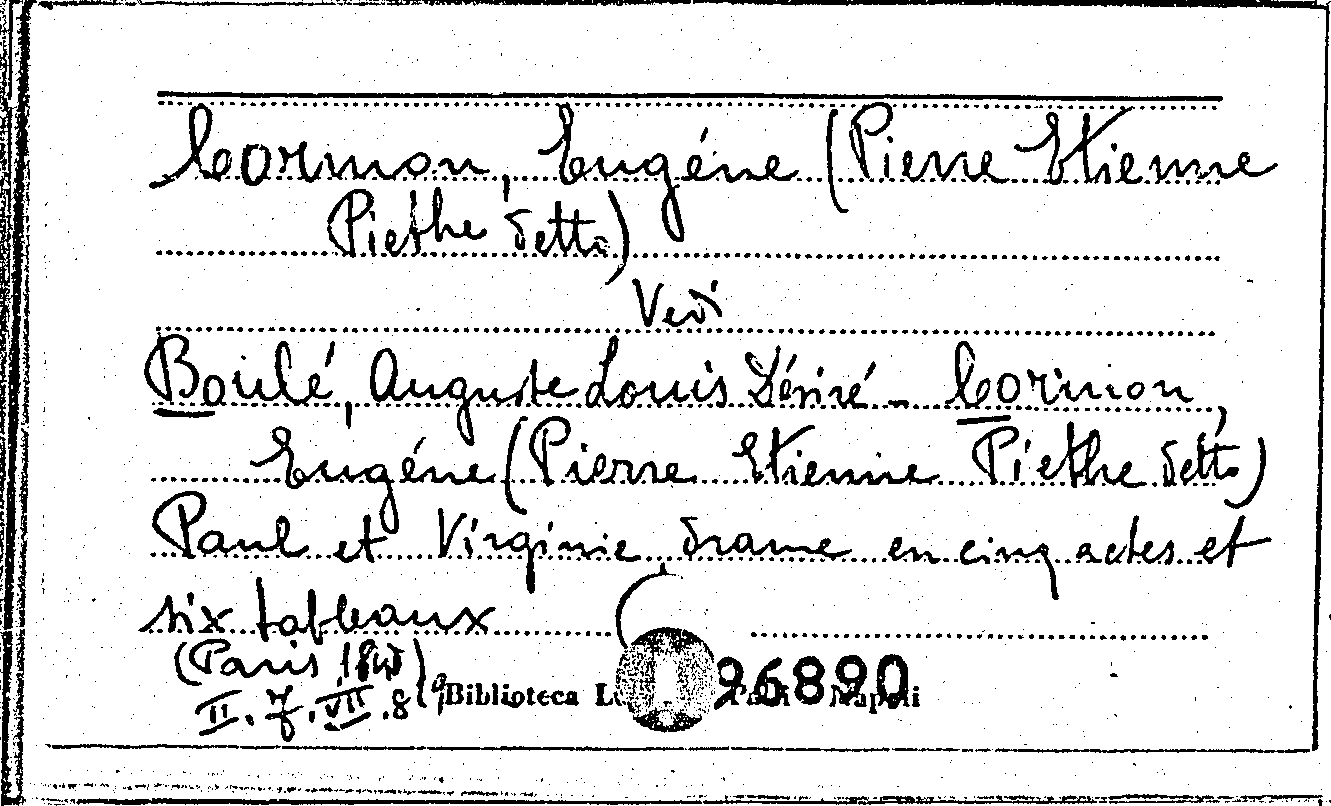 Cormon, Eugéne (Pierre Etienne
Piethe detto)
Vedi
Boulé, Auguste Louis Désiré - Cormon,
Eugéne (Pierre Etienne Piethe detto)
Paul et Virginie, drame en cinq actes et
six tableaux
(Paris,
II. 7. VII. 8
Biblioteca Napoli
96890